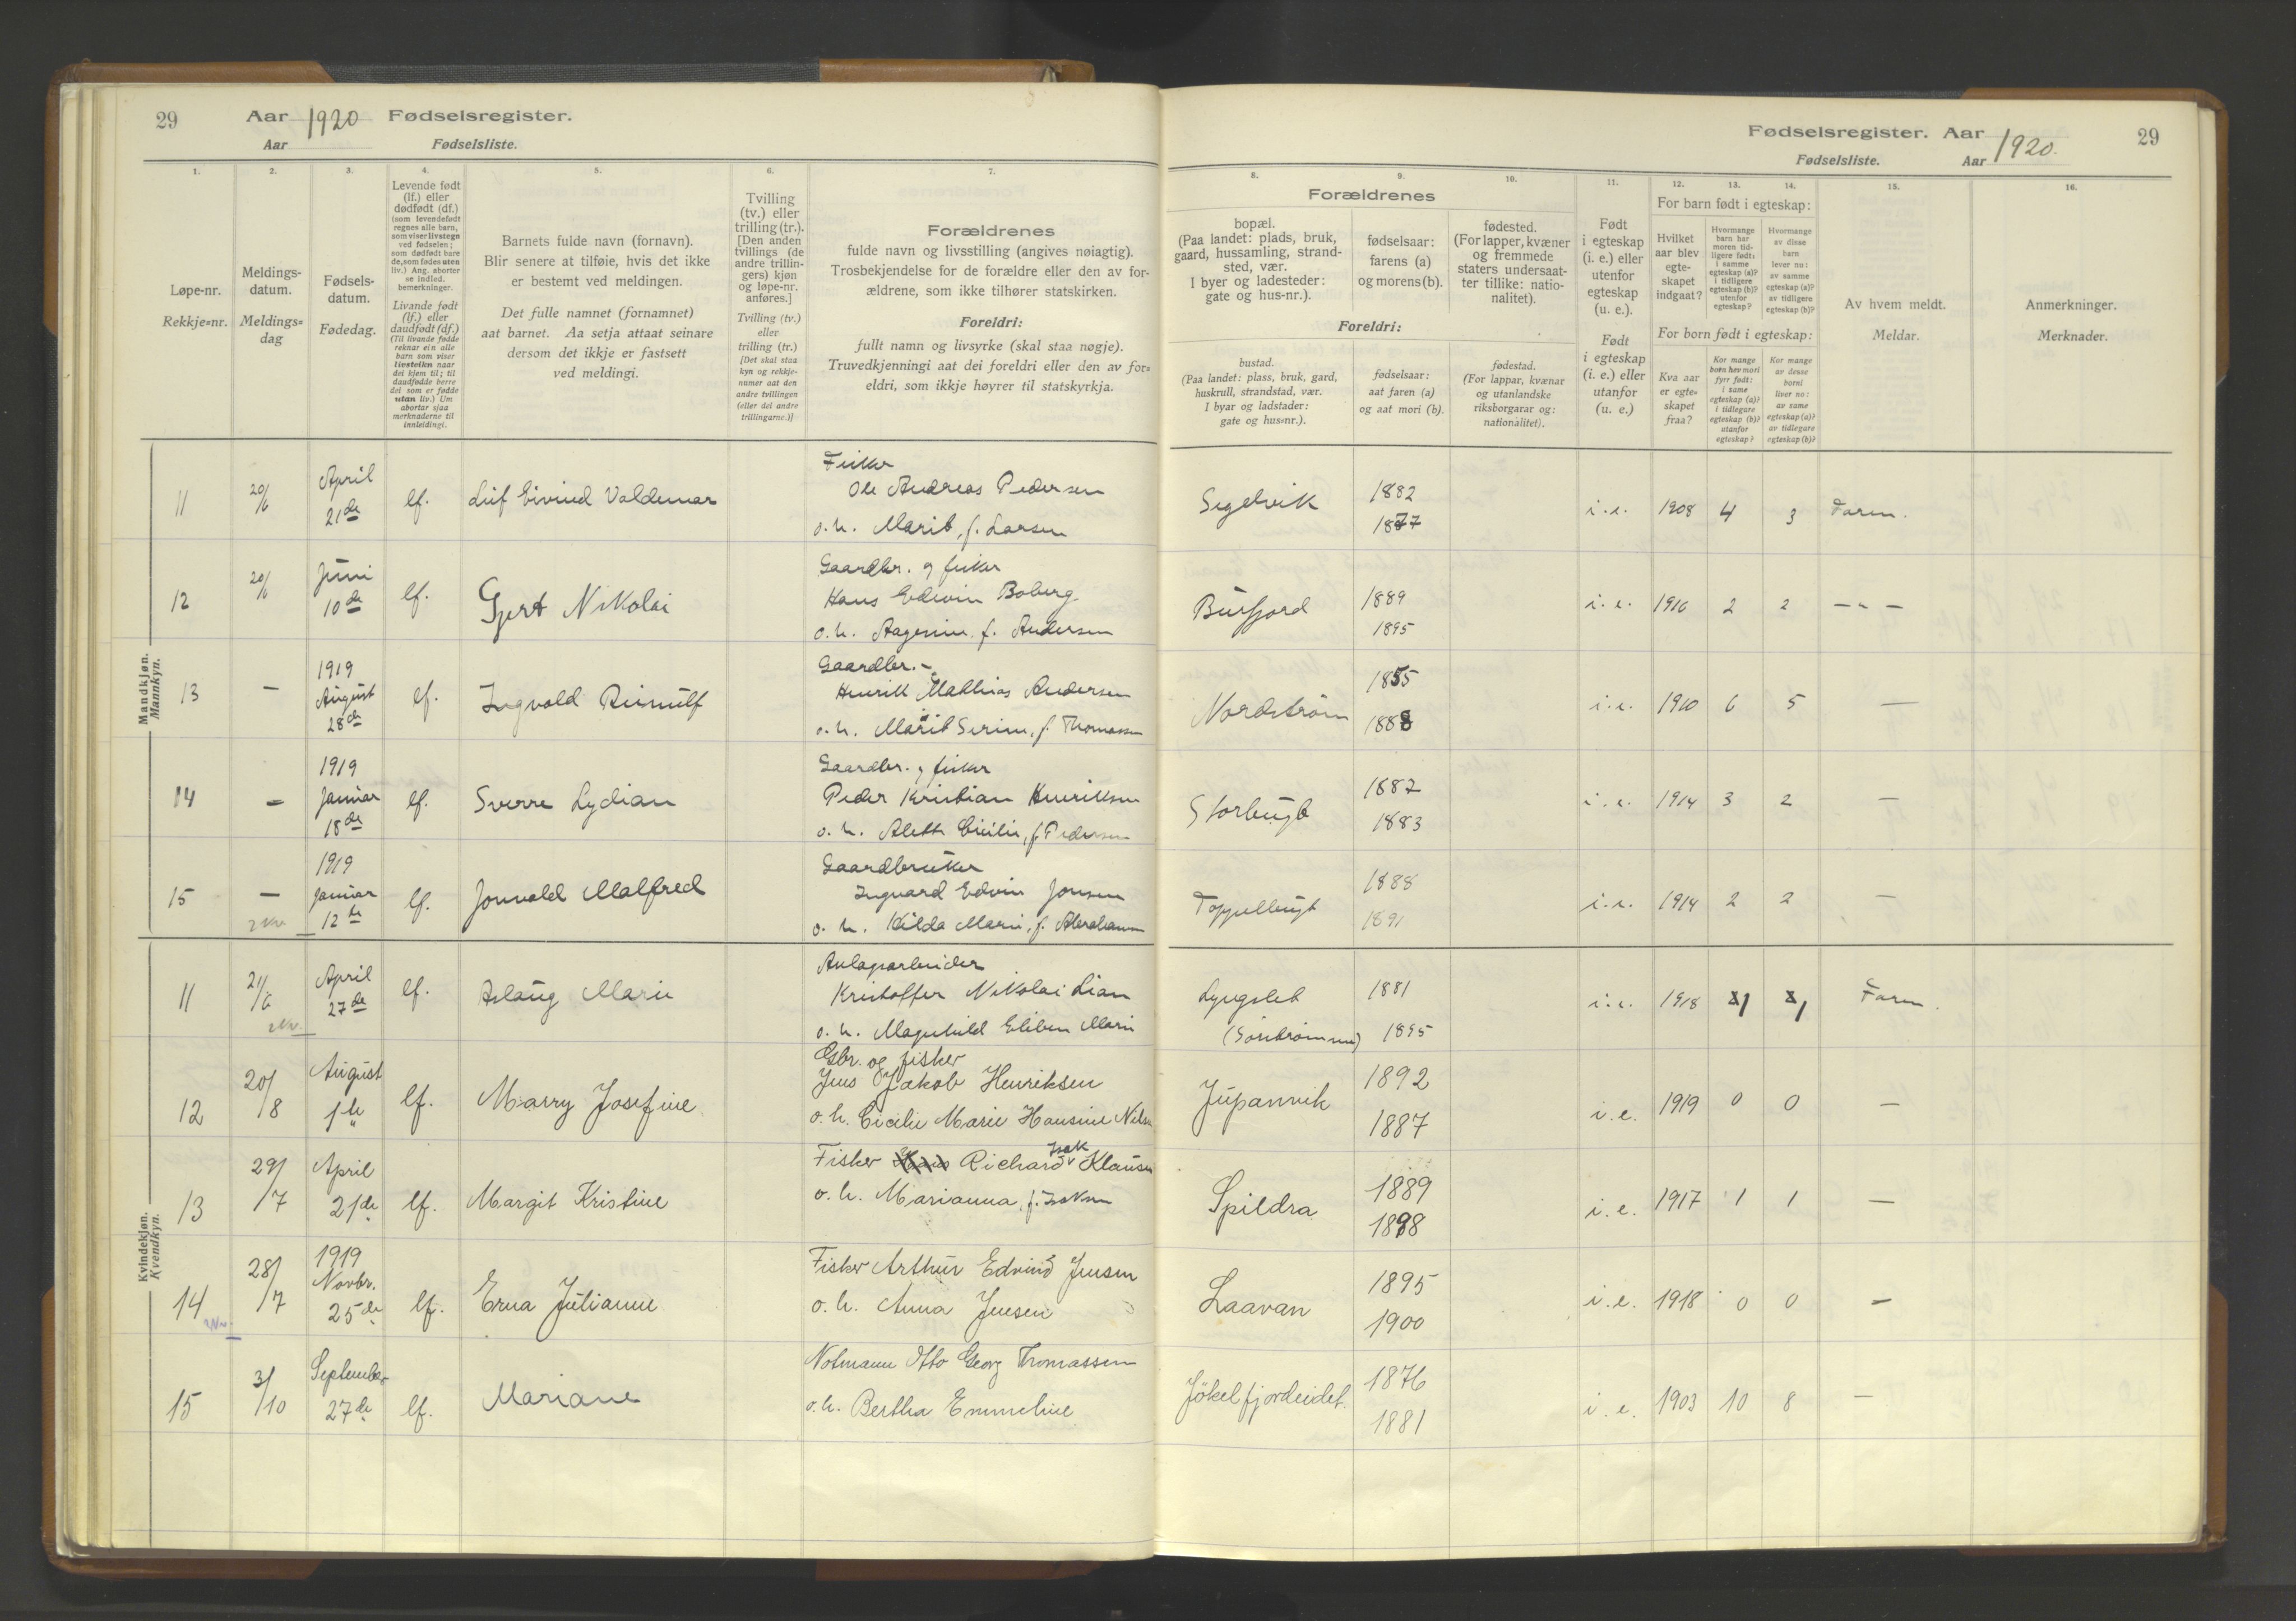 29 Aar 1920 Fødselsregister.
Aar Fødselsliste.
Fødselsregister. Aar 1920. 29
Fødselsliste. Aar
1. 2. 3. 4. 5. 6. 7. 8. 9. 10. 11. 12. 13. 14. 15. 16.
Løpe-nr.
Rekkje=nr.
Meldings-
datum.
Meldings=
dag
Fødsels-
datum.
Fødedag.
Levende født
(lf.) eller
dødfødt (df.)
(som levendefødt
regnes alle barn,
som viser livstegn
ved fødselen;
som dødfødt bare
de, som fødes uten
liv.) Ang. aborter
se indled.
bemerkninger.
Livande født
(lf.) eller
daudfødt (df.)
(Til livande fødde
reknar ein alle
barn som viser
livsteikn naar
dei kjem til; til
daudfødde berre
dei som er fødde
utan liv.) Um
abortar sjaa
merknaderne til
innleidingi.
Barnets fulde navn (fornavn).
Blir senere at tilføie, hvis det ikke
er bestemt ved meldingen.
Det fulle namnet (fornamnet)
aat barnet. Aa setja attaat seinare
dersom det ikkje er fastsett
ved meldingi.
Tvilling
(tv.) eller
trilling (tr.).
[Den anden
tvillings (de
andre trillin-
gers) kjøn
og løpe-nr.
anføres.]
Tvilling (tv.)
eller
trilling (tr.)
[Det skal staa
kyn og rekkje-
numer aat den
andre tvillingen
(eller dei andre
trillingarne.)]
Forældrenes
fulde navn og livsstilling (angives nøiagtig).
Trosbekjendelse for de forældre eller den av for-
ældrene, som ikke tilhører statskirken.
Foreldri:
fullt namn og livsyrke (skal staa nøgje).
Truvedkjenningi aat dei foreldri eller den av for=
eldri, som ikkje høyrer til statskyrkja.
Forældrenes
bopæl.
(Paa landet: plads, bruk,
gaard, hussamling, strand-
sted, vær.
I byer og ladesteder:
gate og hus-nr.).
fødselsaar:
farens (a)
og morens (b).
fødested.
(For lapper, kvæner
og fremmede
staters undersaat-
ter tillike: natio-
nalitet).
Foreldri:
bustad.
(Paa landet: plass, bruk, gard,
huskrull, strandstad, vær.
I byar og ladstader:
gate og hus=nr.).
fødselsaar:
aat faren (a)
og aat mori (b).
fødestad.
(For lappar, kvænar
og utanlandske
riksborgarar og:
nationalitet).
Født
i egteskap
(i. e.) eller
utenfor
egteskap
(u. e.).
Født
i egteskap
(i. e.) eller
utanfor
(u. e.)
For barn født i egteskap:
Hvilket
aar blev
egte-
skapet
indgaat?
Hvormange
barn har
moren tid-
ligere født:
i samme
egteskap (a)?
i tidligere
egteskap (b)?
utenfor
egteskap?
Hvormange
av disse
barn
lever nu:
av samme
egteskap (a)?
av tidligere
egteskap (b)?
For born født i egteskap:
Kva aar
er egte=
skapet
fraa?
Kor mange
born hev mori
fyrr født:
i same
egteskap (a)?
i tidlegare
egteskap (b)?
utanfor
egteskap?
Kor mange
av desse
borni
liver no:
av same
egteskap (a)?
av tidlegare
egteskap (b)?
Av hvem meldt.
Meldar.
Anmerkninger.
Merknader.
Mandkjøn.
Mannkyn.
Fisker
11 20/6 April 21de lf. Leif Eivind Valdemar Ole Andreas Pedersen Segelvik 1882 i.e. 1908 4 3 Faren.
o.h. Marit, f. Larsen 1877
Gaardbr. og fisker
12 20/6 Juni 10de lf. Gjert Nikolai Hans Edvin Boberg Burfjord 1889 i.e. 1916 2 2 — " —
o.h. Aagesine f. Andersen 1895
Gaardbr. -
13 — 1919 August 28de lf. Ingvald Reinulf Henrik Mathias Andersen Nordstrøm 1885 i.e. 1910 6 5 —
o.h. Marit Serine, f. Thomassen 1888
Gaardbr. og fisker
14 — 1919 Januar 18de lf. Sverre Lydian Peder Kristian Henriksen Storbugt 1887 i.e. 1914 3 2 —
o.h. Alette Cicilie, f. Pedersen 1883
Gaardbruker
15 — 1919 Januar 12te lf. Jonvald Malfred Ingvard Edvin Jonsen Toppelbugt 1888 i.e. 1914 2 2 —
o.h. Hilda Marie, f. Abrahamsen 1891
Kvindekjøn.
Kvendkyn.
Anlægsarbeider
11 21/6 April 27de lf. Aslaug Marie Kristoffer Nikolai Lian Lyngslet 1881 i.e. 1918 1 1 Faren.
o.h. Magnhild Eliben Marie (Sørstrømmen) 1895
Gbr. og fisker
12 20/8 August 1ste lf. Marry Josefine Jens Jakob Henriksen Jupanvik 1892 i.e. 1919 0 0 —
o.h. Cicilie Marie Hansine Nilsen 1887
13 29/7 April 21de lf. Margit Kristine Fisker Richard Isak Klausen Spildra 1889 i.e. 1917 1 1 —
o.h. Marianna, f. Isaksen 1898
14 28/7 1919 Novbr. 25de lf. Erna Julianne Fisker Arthur Edvind Jensen Laavan 1895 i.e. 1918 0 0 —
o.h. Anna Jensen 1900
15 3/10 September 27de lf. Mariane Notmann Otto Georg Thomassen Jökelfjordeidet. 1876 i.e. 1903 10 8 —
o.h. Bertha Emmeline 1881